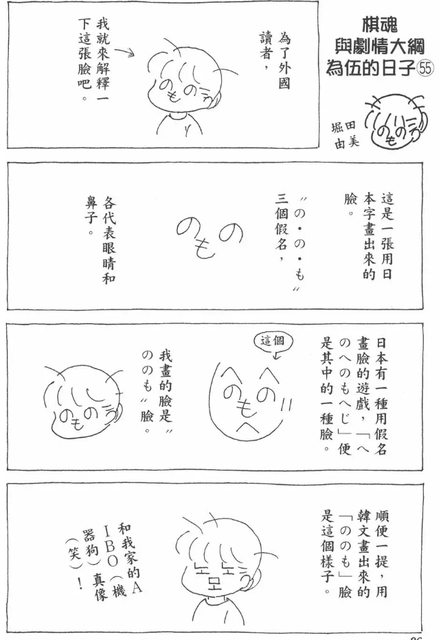 棋魂
與劇情大綱
為伍的日子㊺
堀田
由美
為了外國
讀者，
我就來解釋一
下這張臉吧。
這是一張用日
本字畫出來的
臉。
〝の・の・も〞
三個假名，
のの
も
各代表眼睛和
鼻子。
日本有一種用假名
畫臉的遊戲，「へ
のへのもへじ」便
是其中的一種臉。
這個
我畫的臉是〝
ののも〞臉。
順便一提，用
韓文畫出來的
「ののも」臉
是這個樣子。
和我家的A
IBO（機
器狗）真像
（笑）！